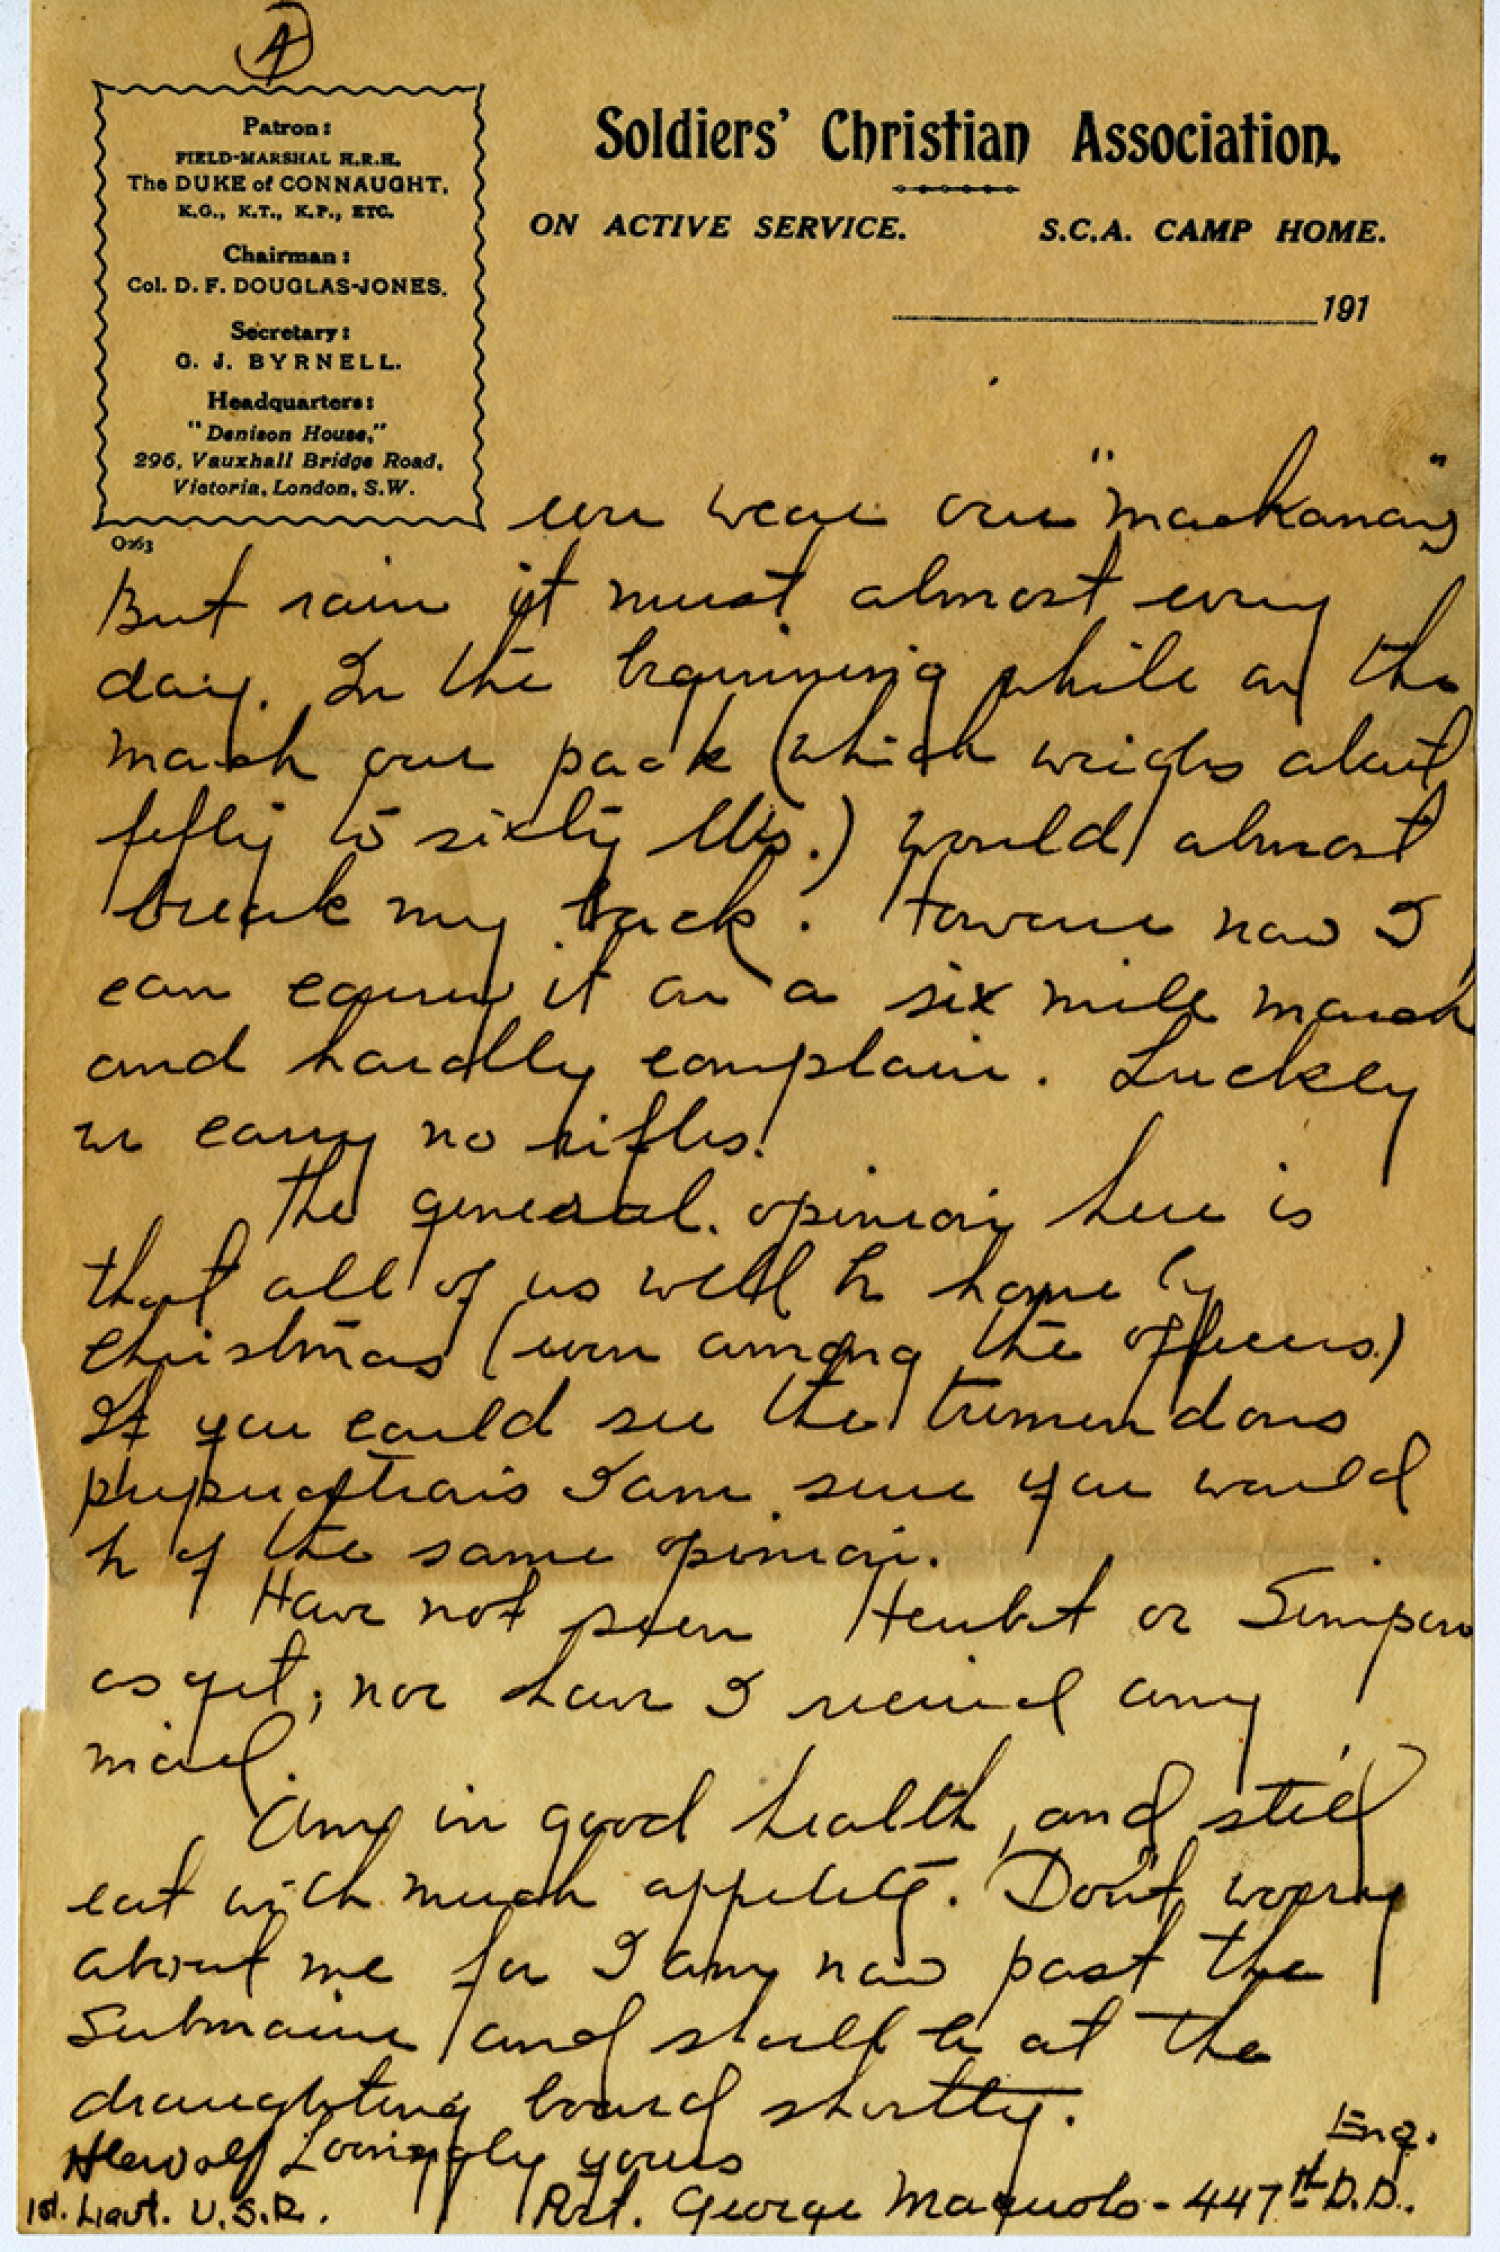 4
Patron:
FIELD-MARSHAL H.R.H.
The DUKE of CONNAUGHT,
K.G., K.T., K.P., ETC.
Chairman:
Col. D. F. DOUGLAS-JONES.
Secretary:
G. J. BYRNELL.
Headquarters:
"Denison House,"
296, Vauxhall Bridge Road,
Victoria, London, S.W.
O263
Soldiers' Christian Association.
ON ACTIVE SERVICE. S.C.A. CAMP HOME.
191
even wear our
But rain it must almost every
day. In the beginning while on the
march our pack (which weighs about
fifty to sixty lbs.) would almost
break my back. However now I
can carry it on a six mile march
and hardly complain. Luckley
we carry no rifles!
The general opinion here is
that all of us will be home by
Christmas (even among the officers.)
If you could see the tremendous
preperations I am sure you would
be of the same opinion.
Have not seen Herbert or
as yet; nor have I received any
mail.
Am in good health, and still
eat with much appetite. Don't worry
about me for I am now past the
Submarine and shall be at the
draughting board shortly.
Lovingly yours
1st. Lieut. U.S.R. Pvt. George - 447th D.D.
Eng.